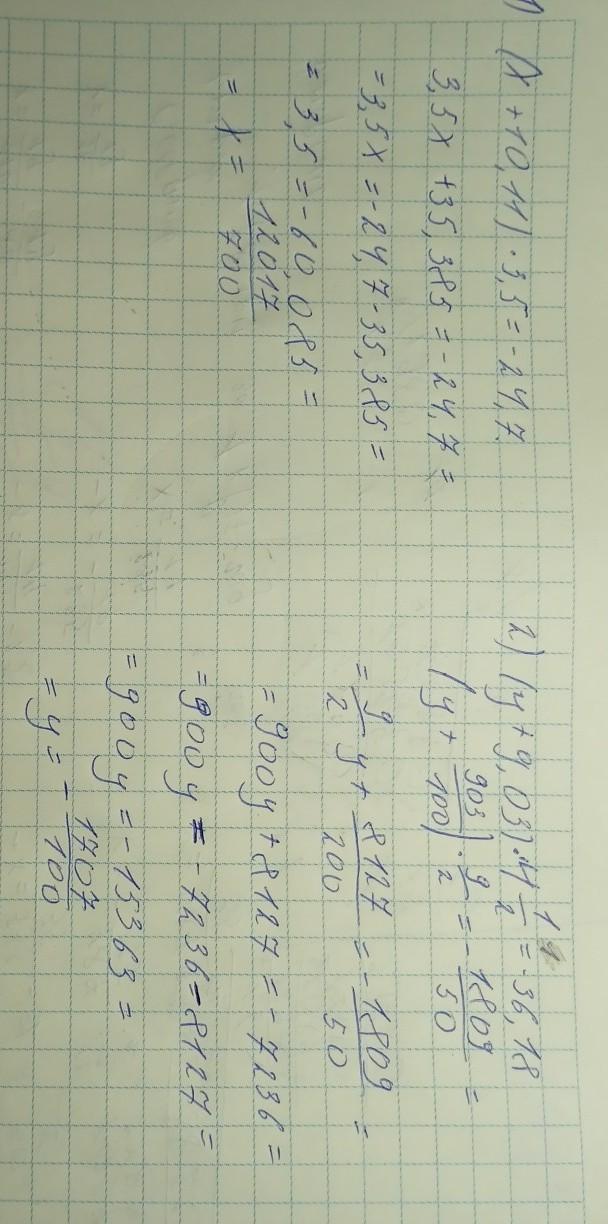 1)
(x + 10,11) · 3,5 = -24,7
3,5x + 35,385 = -24,7 =
= 3,5x = -24,7 - 35,385 =
= 3,5 = -60,085 =
= x = 12017/700
2) (y + 9,03) · 4 1/2 = -36,18
(y + 903/100) · 9/2 = -1809/50 =
= 9/2 y + 8127/200 = -1809/50 =
= 900y + 8127 = -7236 =
= 900y = -7236 - 8127 =
= 900y = -15363 =
= y = -1707/100